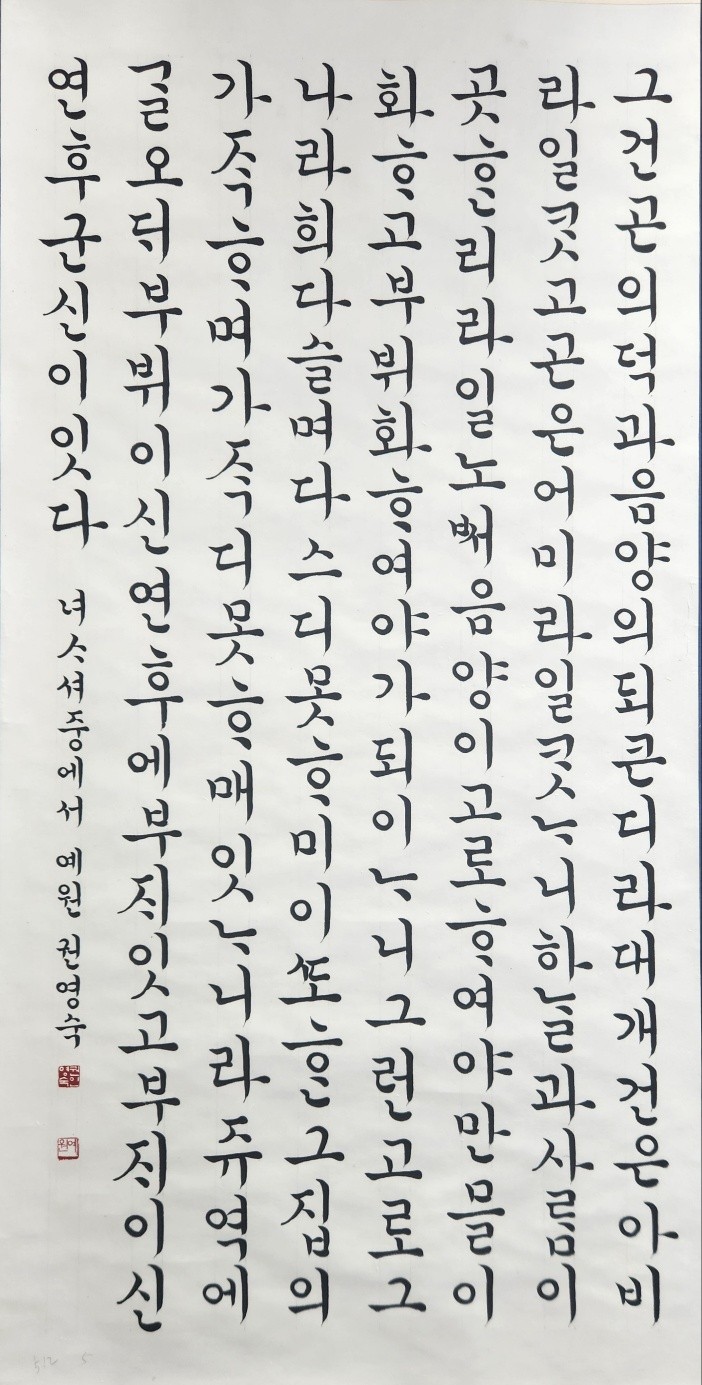 그건곤의덕과음양의되큰디라대개건은아비
라일ᄏᆞᆺ고곤은어미라일ᄏᆞᆺᄂᆞ니하ᄂᆞᆯ과사ᄅᆞᆷ이
곳ᄒᆞᆫ리라일노ᄡᅥ음양이고로ᄒᆞ여야만믈이
화ᄒᆞ고부뷔화ᄒᆞ여야가되이ᄂᆞ니그런고로그
나라희다ᄉᆞᆯ며다ᄉᆞ디못ᄒᆞ미이ᄯᅩᄒᆞᆫ그집의
가ᄌᆞᆨᄒᆞ며가ᄌᆞᆨ디못ᄒᆞ매잇ᄂᆞ니라쥬역에
ᄀᆞᆯ오ᄃᆡ부뷔이신연후에부ᄌᆡ잇고부ᄌᆡ이신
연후군신이잇다 녀ᄉᆞ셔중에서 예원 권영숙